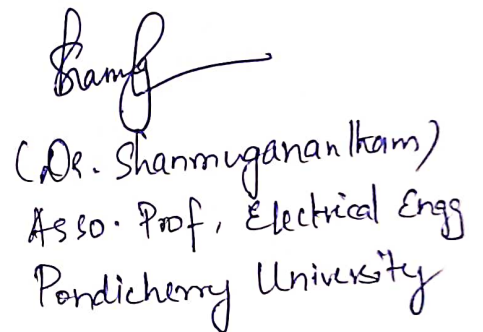 (Dr. Shanmuganantham)
Asso. Prof, Electrical Engg
Pondicherry University